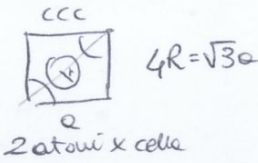 CCC
4R=√3a
a
2 atomi x cella